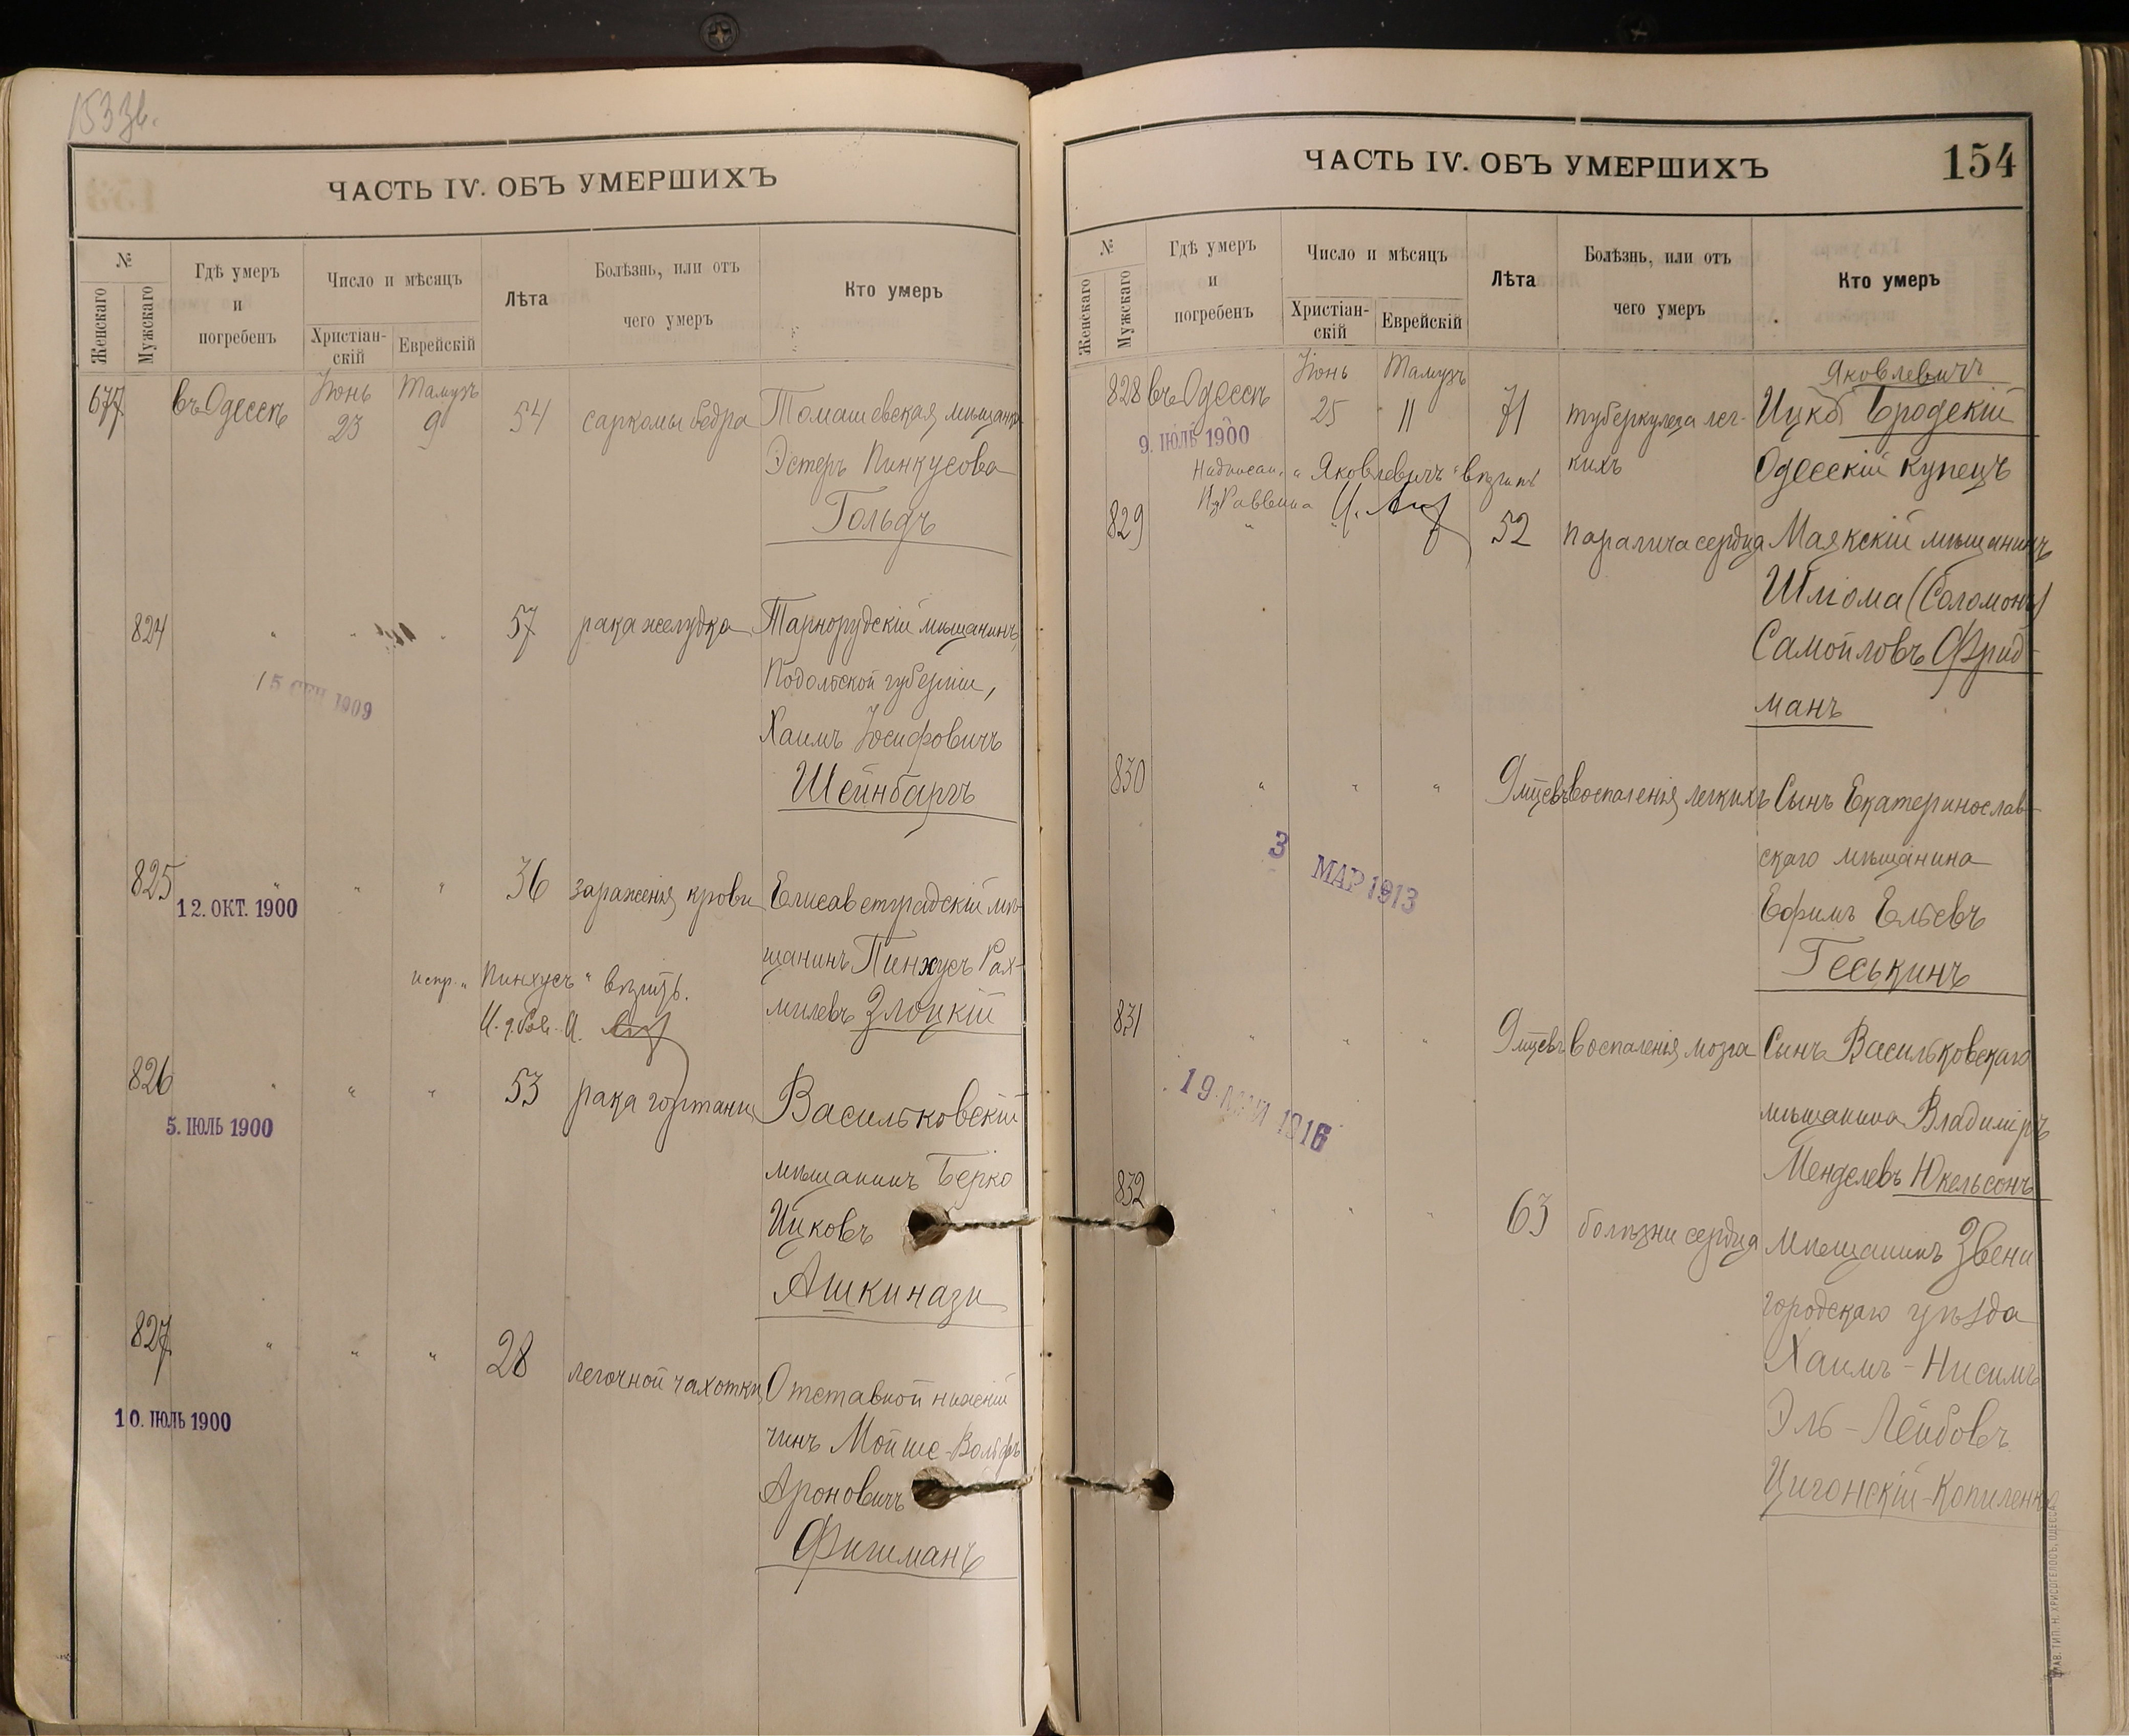 153 зв.
ЧАСТЬ IV. ОБЪ УМЕРШИХЪ
№
Женскаго
Мужскаго
Гдѣ умеръ
и
погребенъ
Число и мѣсяцъ
Христіан-
скій
Еврейскій
Лѣта
Болѣзнь, или отъ
чего умеръ
Кто умеръ
677 въ Одессѣ Іюнь 23 Тамузъ 9 54 саркомы бедра Томашевская мѣщанка
Эстеръ Пинкусова
Гольдъ
824 " " " 57 рака желудка Тарнорудскій мѣщанинъ,
Подольской губерніи,
15 СЕН 1909
Хаимъ Іосифовичъ
Шейнбаргъ
825 " " " 36 зараженія крови Елисаветградскій мѣ-
12. ОКТ. 1900
щанинъ Пинхусъ Рах-
испр. „Пинхусъ" вѣрить.
милевъ Злоцкій
826 " " " 53 рака гортани Васильковскій
5. ІЮЛЬ 1900
мѣщанинъ Берко
Ицковъ
Ашкинази
827 " " " 28 легочной чахотки Отставной нижній
10. ІЮЛЬ 1900
чинъ Мойше-Вольфъ
Ароновичъ
Фишманъ
ЧАСТЬ IV. ОБЪ УМЕРШИХЪ
154
№
Женскаго
Мужскаго
Гдѣ умеръ
и
погребенъ
Число и мѣсяцъ
Христіан-
скій
Еврейскій
Лѣта
Болѣзнь, или отъ
чего умеръ
Кто умеръ
Яковлевичъ
828 въ Одессѣ Іюнь 25 Тамузъ 11 71 туберкулеза лег- Ицко Бродскій
9. ІЮЛЬ 1900
кихъ Одесскій купецъ
Надписан. „Яковлевичъ" вѣрить
Раввина
829 " " " 52 паралича сердца Маякскій мѣщанинъ
Шлома (Соломонъ)
Самойловъ Фрид-
манъ
830 " " " 9 мцевъ воспаленія легкихъ Сынъ Екатеринослав-
3 МАР 1913
скаго мѣщанина
Ефимъ Ельевъ
Геськинъ
831 " " " 9 мцевъ воспаленія мозга Сынъ Васильковскаго
19 МАЙ 1916
мѣщанина Владиміръ
Менделевъ Юкельсонъ
832 " " " 63 болѣзни сердца Мѣщанинъ Звени
городскаго уѣзда
Хаимъ-Нисимъ
Эль-Лейбовъ
Цигонскій-Копиленко
ТИП. Н. ХРИСОГЕЛОСЪ, ОДЕССА